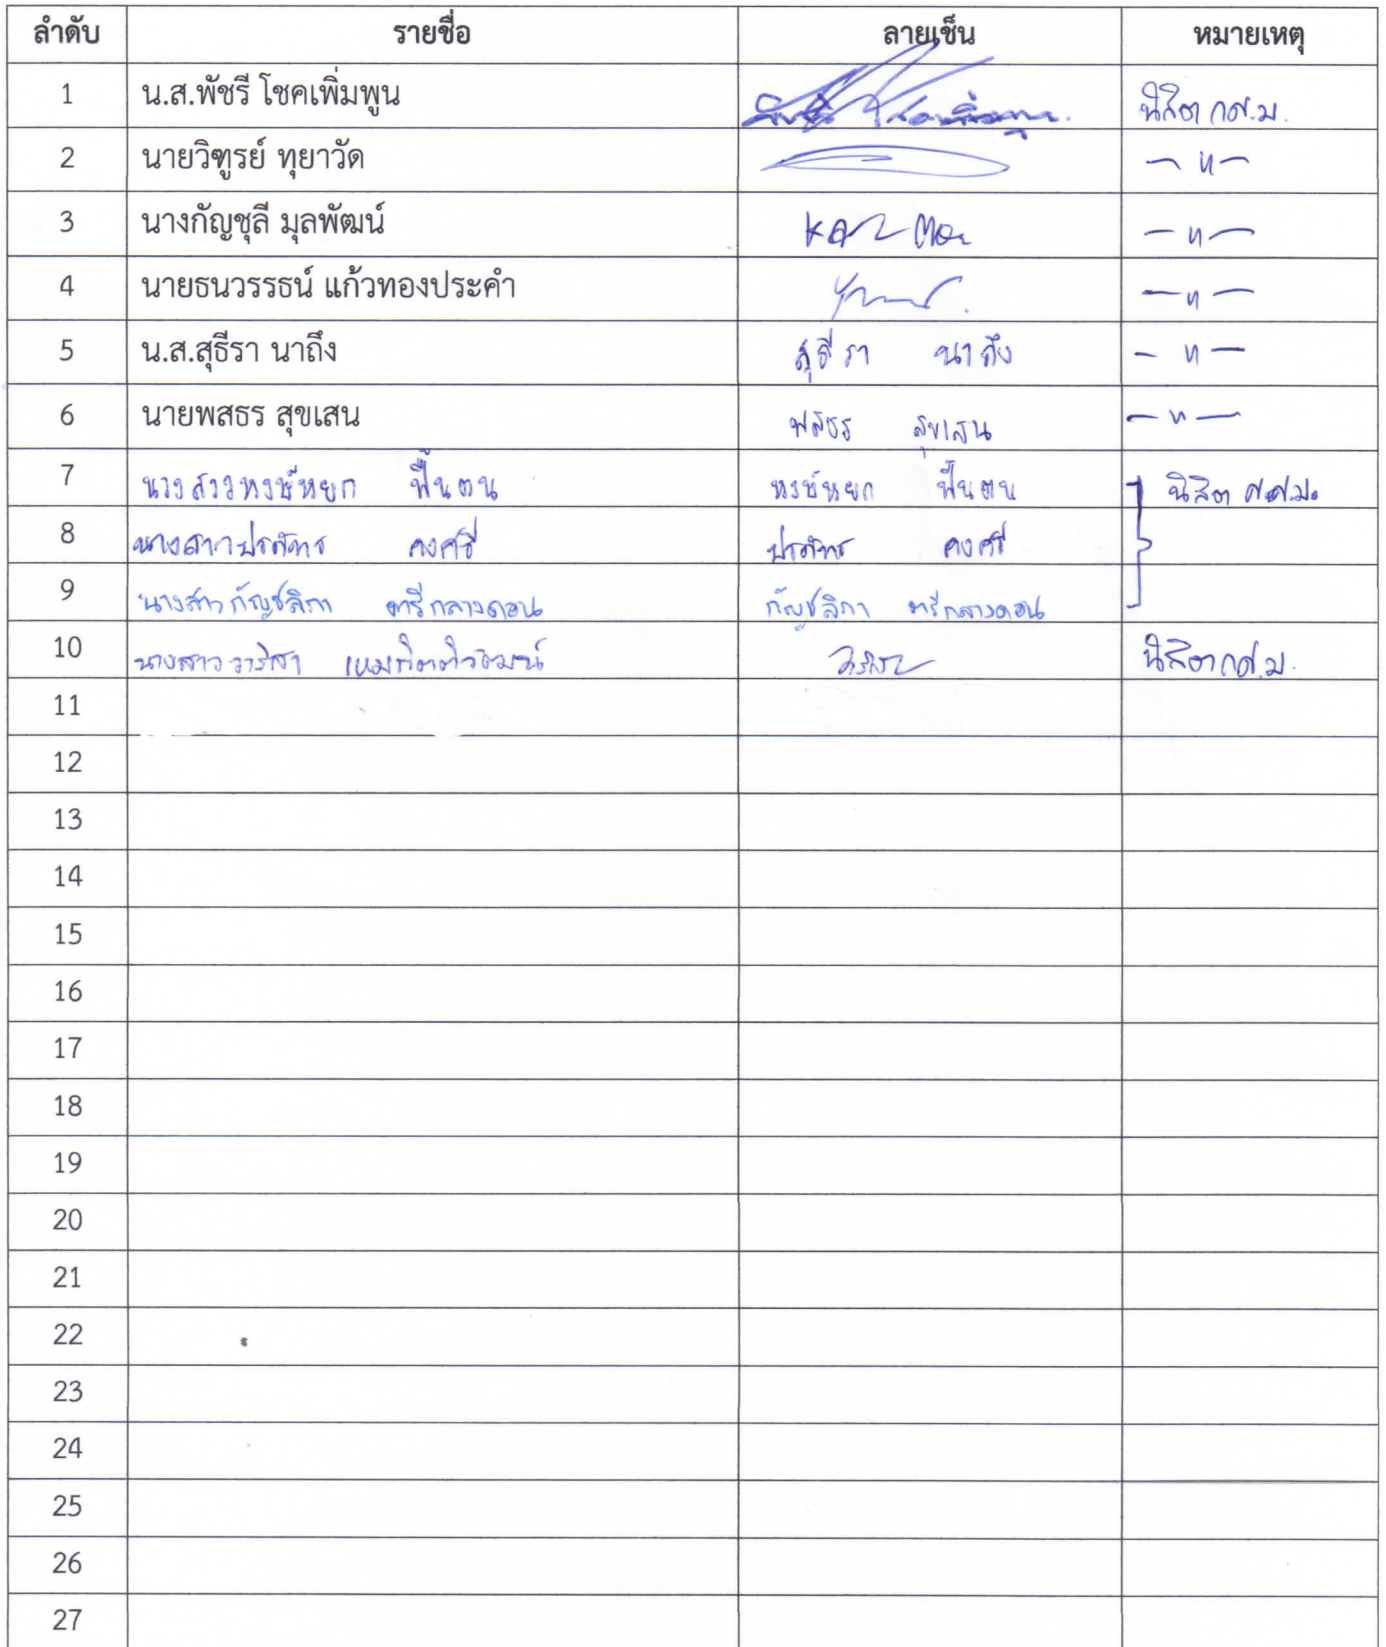 ลำดับ รายชื่อ ลายเซ็น หมายเหตุ
1 น.ส.พัชรี โชคเพิ่มพูน นิสิต กศ.ม.
2 นายวิฑูรย์ ทุยาวัด — " —
3 นางกัญชุลี มุลพัฒน์ — " —
4 นายธนวรรธน์ แก้วทองประคำ — " —
5 น.ส.สุธีรา นาถึง สุธีรา นาถึง — " —
6 นายพสธร สุขเสน พสธร สุขเสน — " —
7 นางสาวหงษ์หยก ฟื้นตน หงษ์หยก ฟื้นตน นิสิต ศศ.ม.
8 นางสาวปรภัทร คงศรี ปรภัทร คงศรี
9 นางสาวกัญชลิกา ตรีกลางดอน กัญชลิกา ตรีกลางดอน
10 นางสาววาริศา นิสิต กศ.ม.
11
12
13
14
15
16
17
18
19
20
21
22
23
24
25
26
27